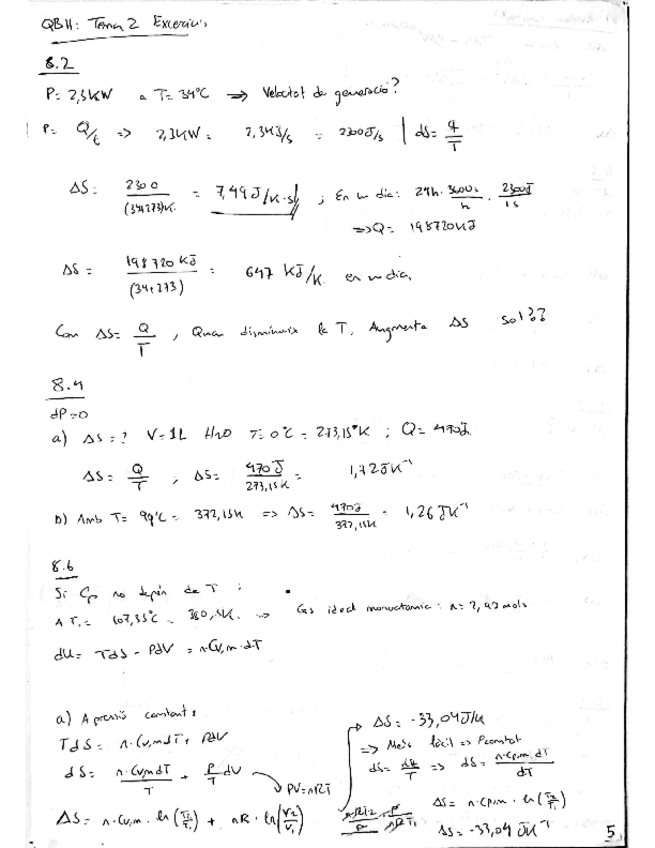 QBII: Tema 2 Exercicis
8.2
P= 2,3kW a T= 34°C => Velocitat de generació?
P= Q/t => 2,3kW = 2,3kJ/s = 2300J/s | dS= q/T
ΔS= 2300/(34+273)K = 7,49 J/K·s ; En un dia: 24h · 3600s/h · 2300J/1s
=> Q= 198720KJ
ΔS = 198720 KJ/(34+273) = 647 KJ/K en un dia.
Com ΔS= Q/T , Quan disminuix la T, Augmenta ΔS
8.4
dP=0
a) ΔS=? V=1L H2O T=0°C = 273,15°K ; Q= 470J
ΔS= Q/T , ΔS= 470J/273,15K = 1,72JK⁻¹
b) Amb T= 99°C = 372,15K => ΔS= 470J/372,15K = 1,26JK⁻¹
8.6
Si Cp no depèn de T :
A T1= 107,35°C = 380,5K => Gas ideal monoatomic: n= 2,42mols
dU= TdS - PdV = n·Cv,m·dT
a) A pressió constant:
TdS= n·Cv,mdT+ PdV
dS= n·Cv,mdT/T + P/T dV
PV=nRT
ΔS= n·Cv,m·ln(T2/T1) + nR·ln(V2/V1)
ΔS= -33,04J/K
=> Més fàcil => P constat
=> dS= n·Cp,m·dT/dT
ΔS= n·Cp,m·ln(T2/T1)
ΔS= -33,04 JK⁻¹
5